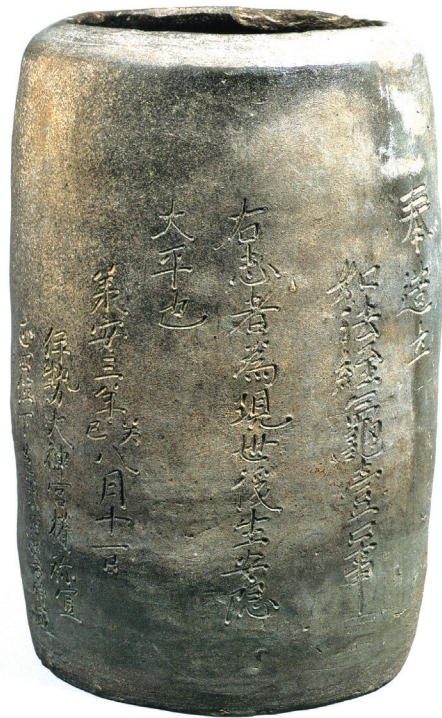 奉造立
如法経亀壹口事
右志者為現世後生安隠
大平也
承安三年癸巳八月十一日
伊勢大神宮権祢宜
正四位下